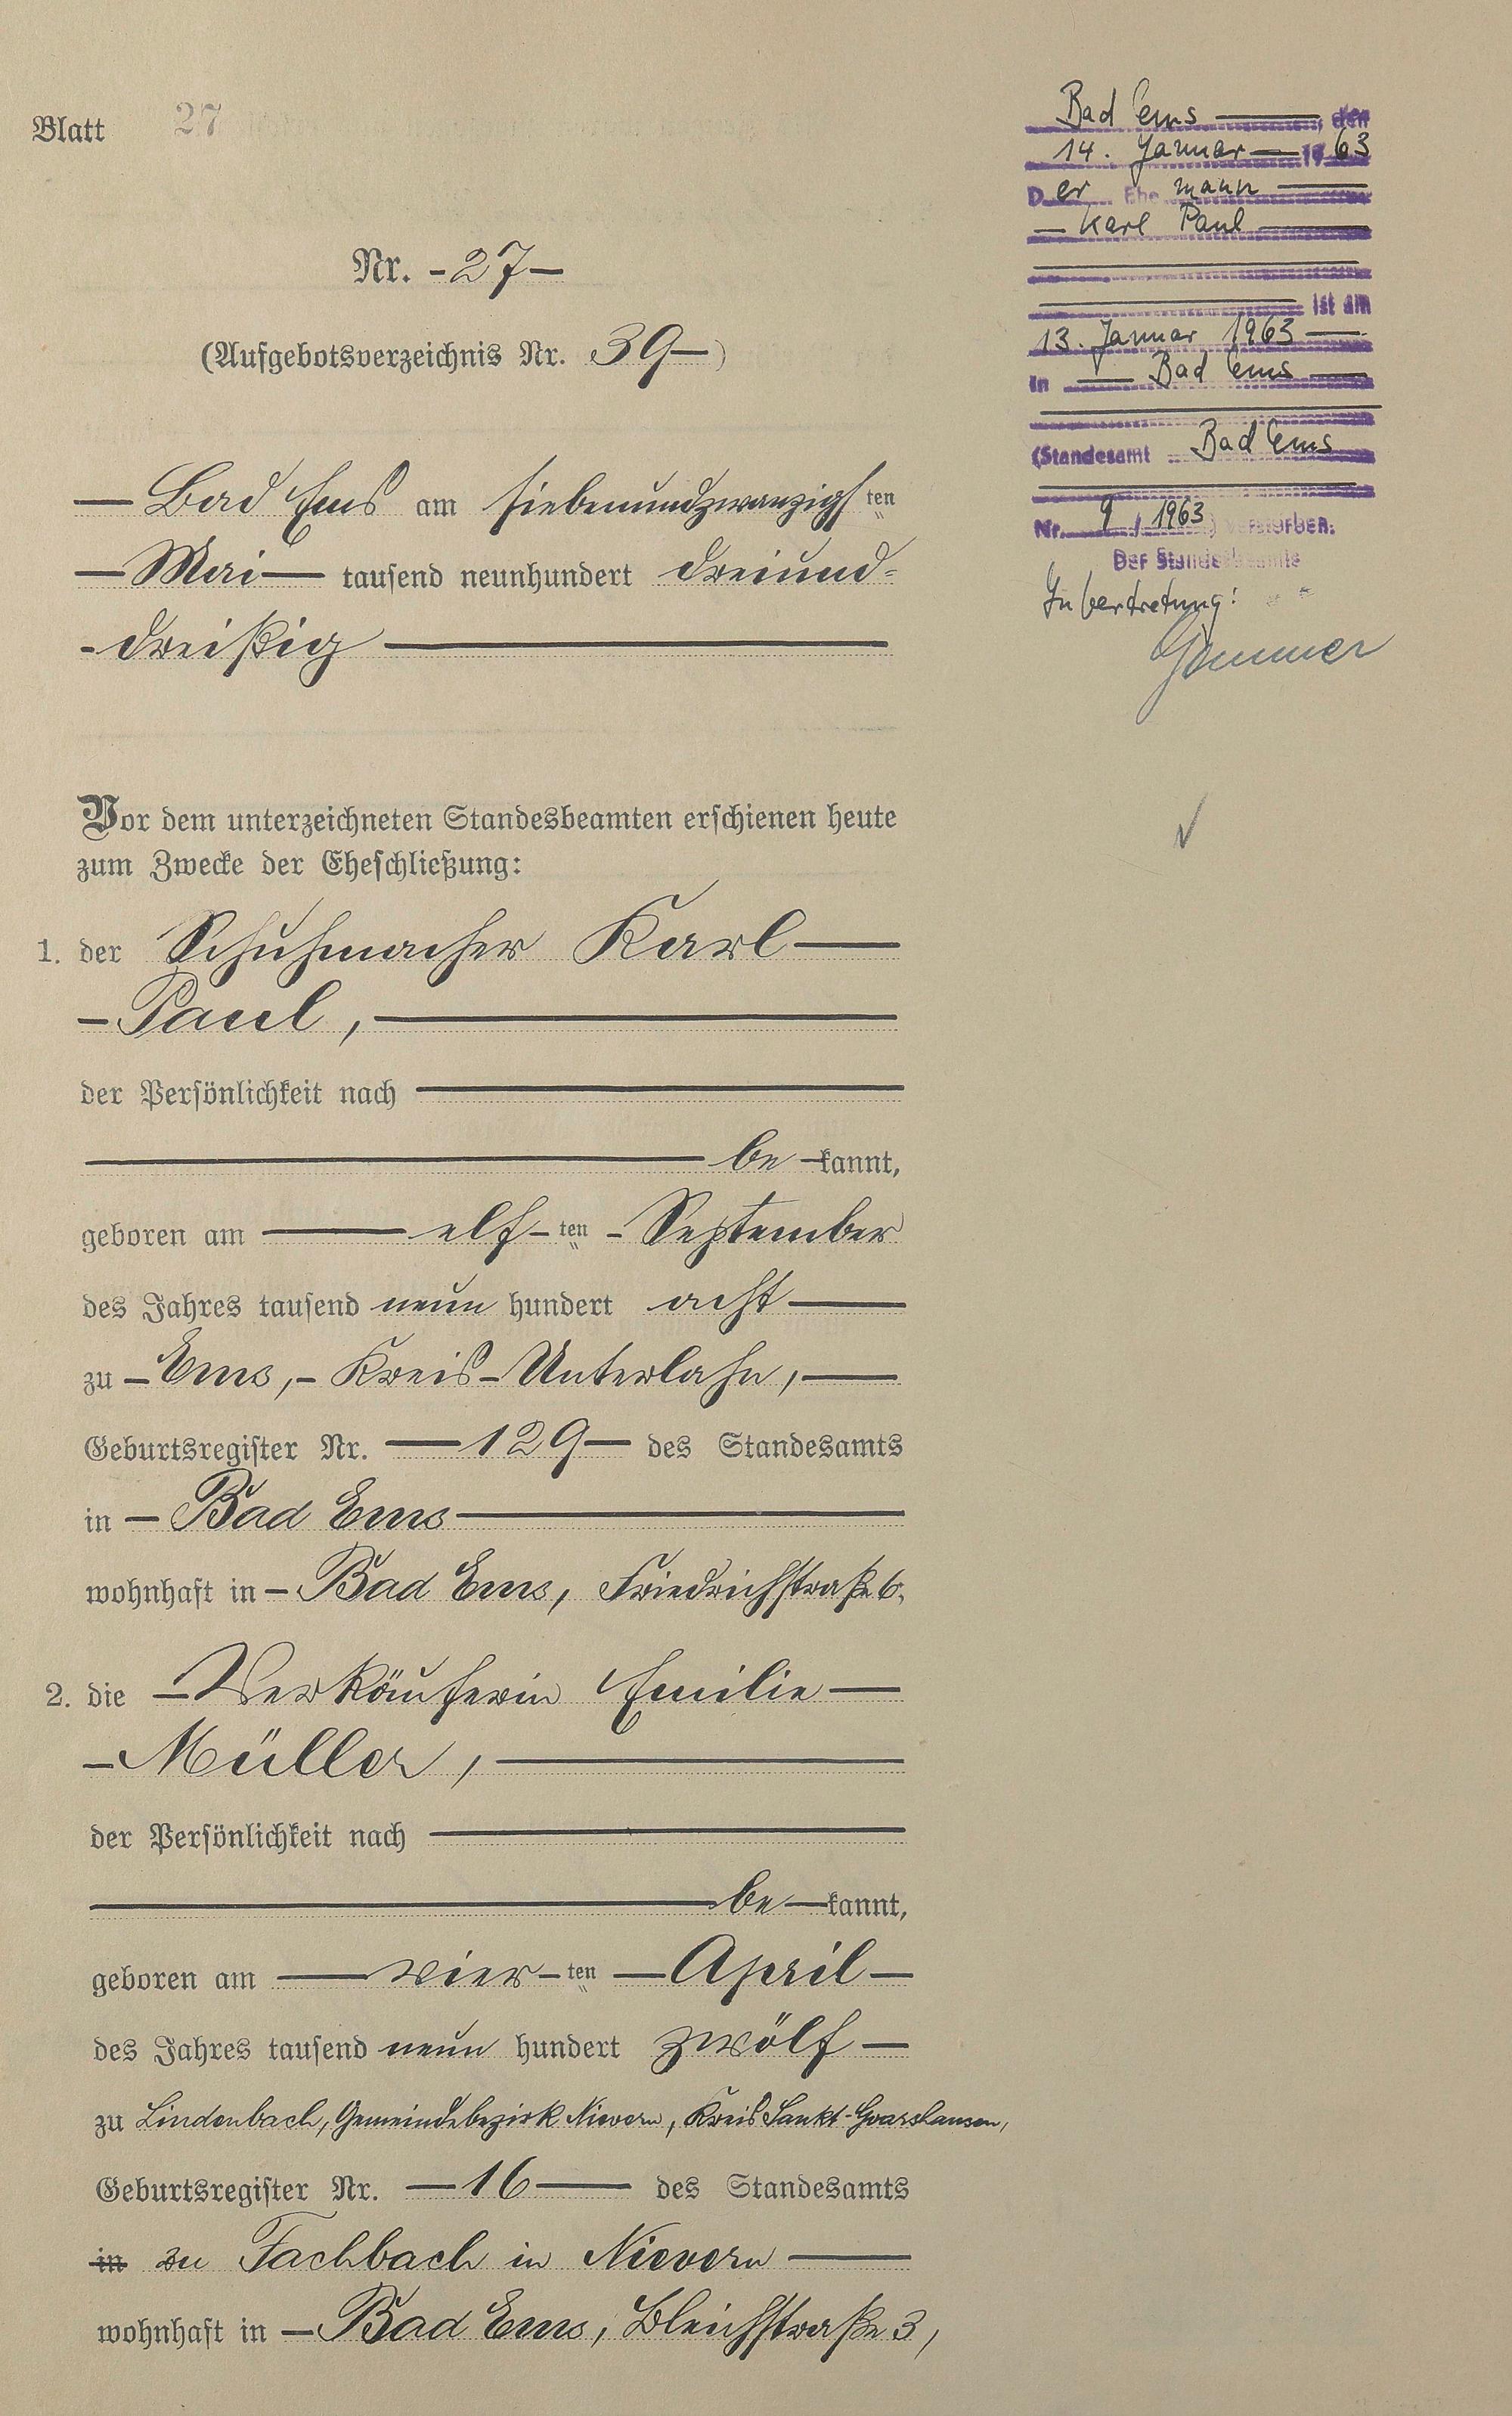 Blatt 27
Nr. - 27 -
(Aufgebotsverzeichnis Nr. 39 -)
- Bad Ems am siebenundzwanzigsten
- Mai - tausend neunhundert dreiund-
- dreißig -
Vor dem unterzeichneten Standesbeamten erschienen heute
zum Zwecke der Eheschließung:
1. der Schuhmacher Karl -
- Paul, -
der Persönlichkeit nach -
- be - kannt,
geboren am - elf - ten - September
des Jahres tausend neun hundert acht -
zu - Ems, - Kreis - Unterlahn, -
Geburtsregister Nr. - 129 - des Standesamts
in - Bad Ems -
wohnhaft in - Bad Ems, Friedrichstraße 6,
2. die - Verkäuferin Emilie -
- Müller, -
der Persönlichkeit nach -
- be - kannt,
geboren am - vier - ten - April -
des Jahres tausend neun hundert zwölf -
zu Lindenbach, Gemeindebezirk Nievern, Kreis Sankt-Goarshausen,
Geburtsregister Nr. - 16 - des Standesamts
in zu Fachbach in Nievern -
wohnhaft in - Bad Ems, Bleichstraße 3,
Bad Ems -, den
14. Januar - 1963
Der Ehemann -
- Karl Paul -
- ist am
13. Januar 1963 -
in - Bad Ems -
(Standesamt Bad Ems
Nr. 9 / 1963) verstorben.
Der Standesbeamte
In Vertretung: